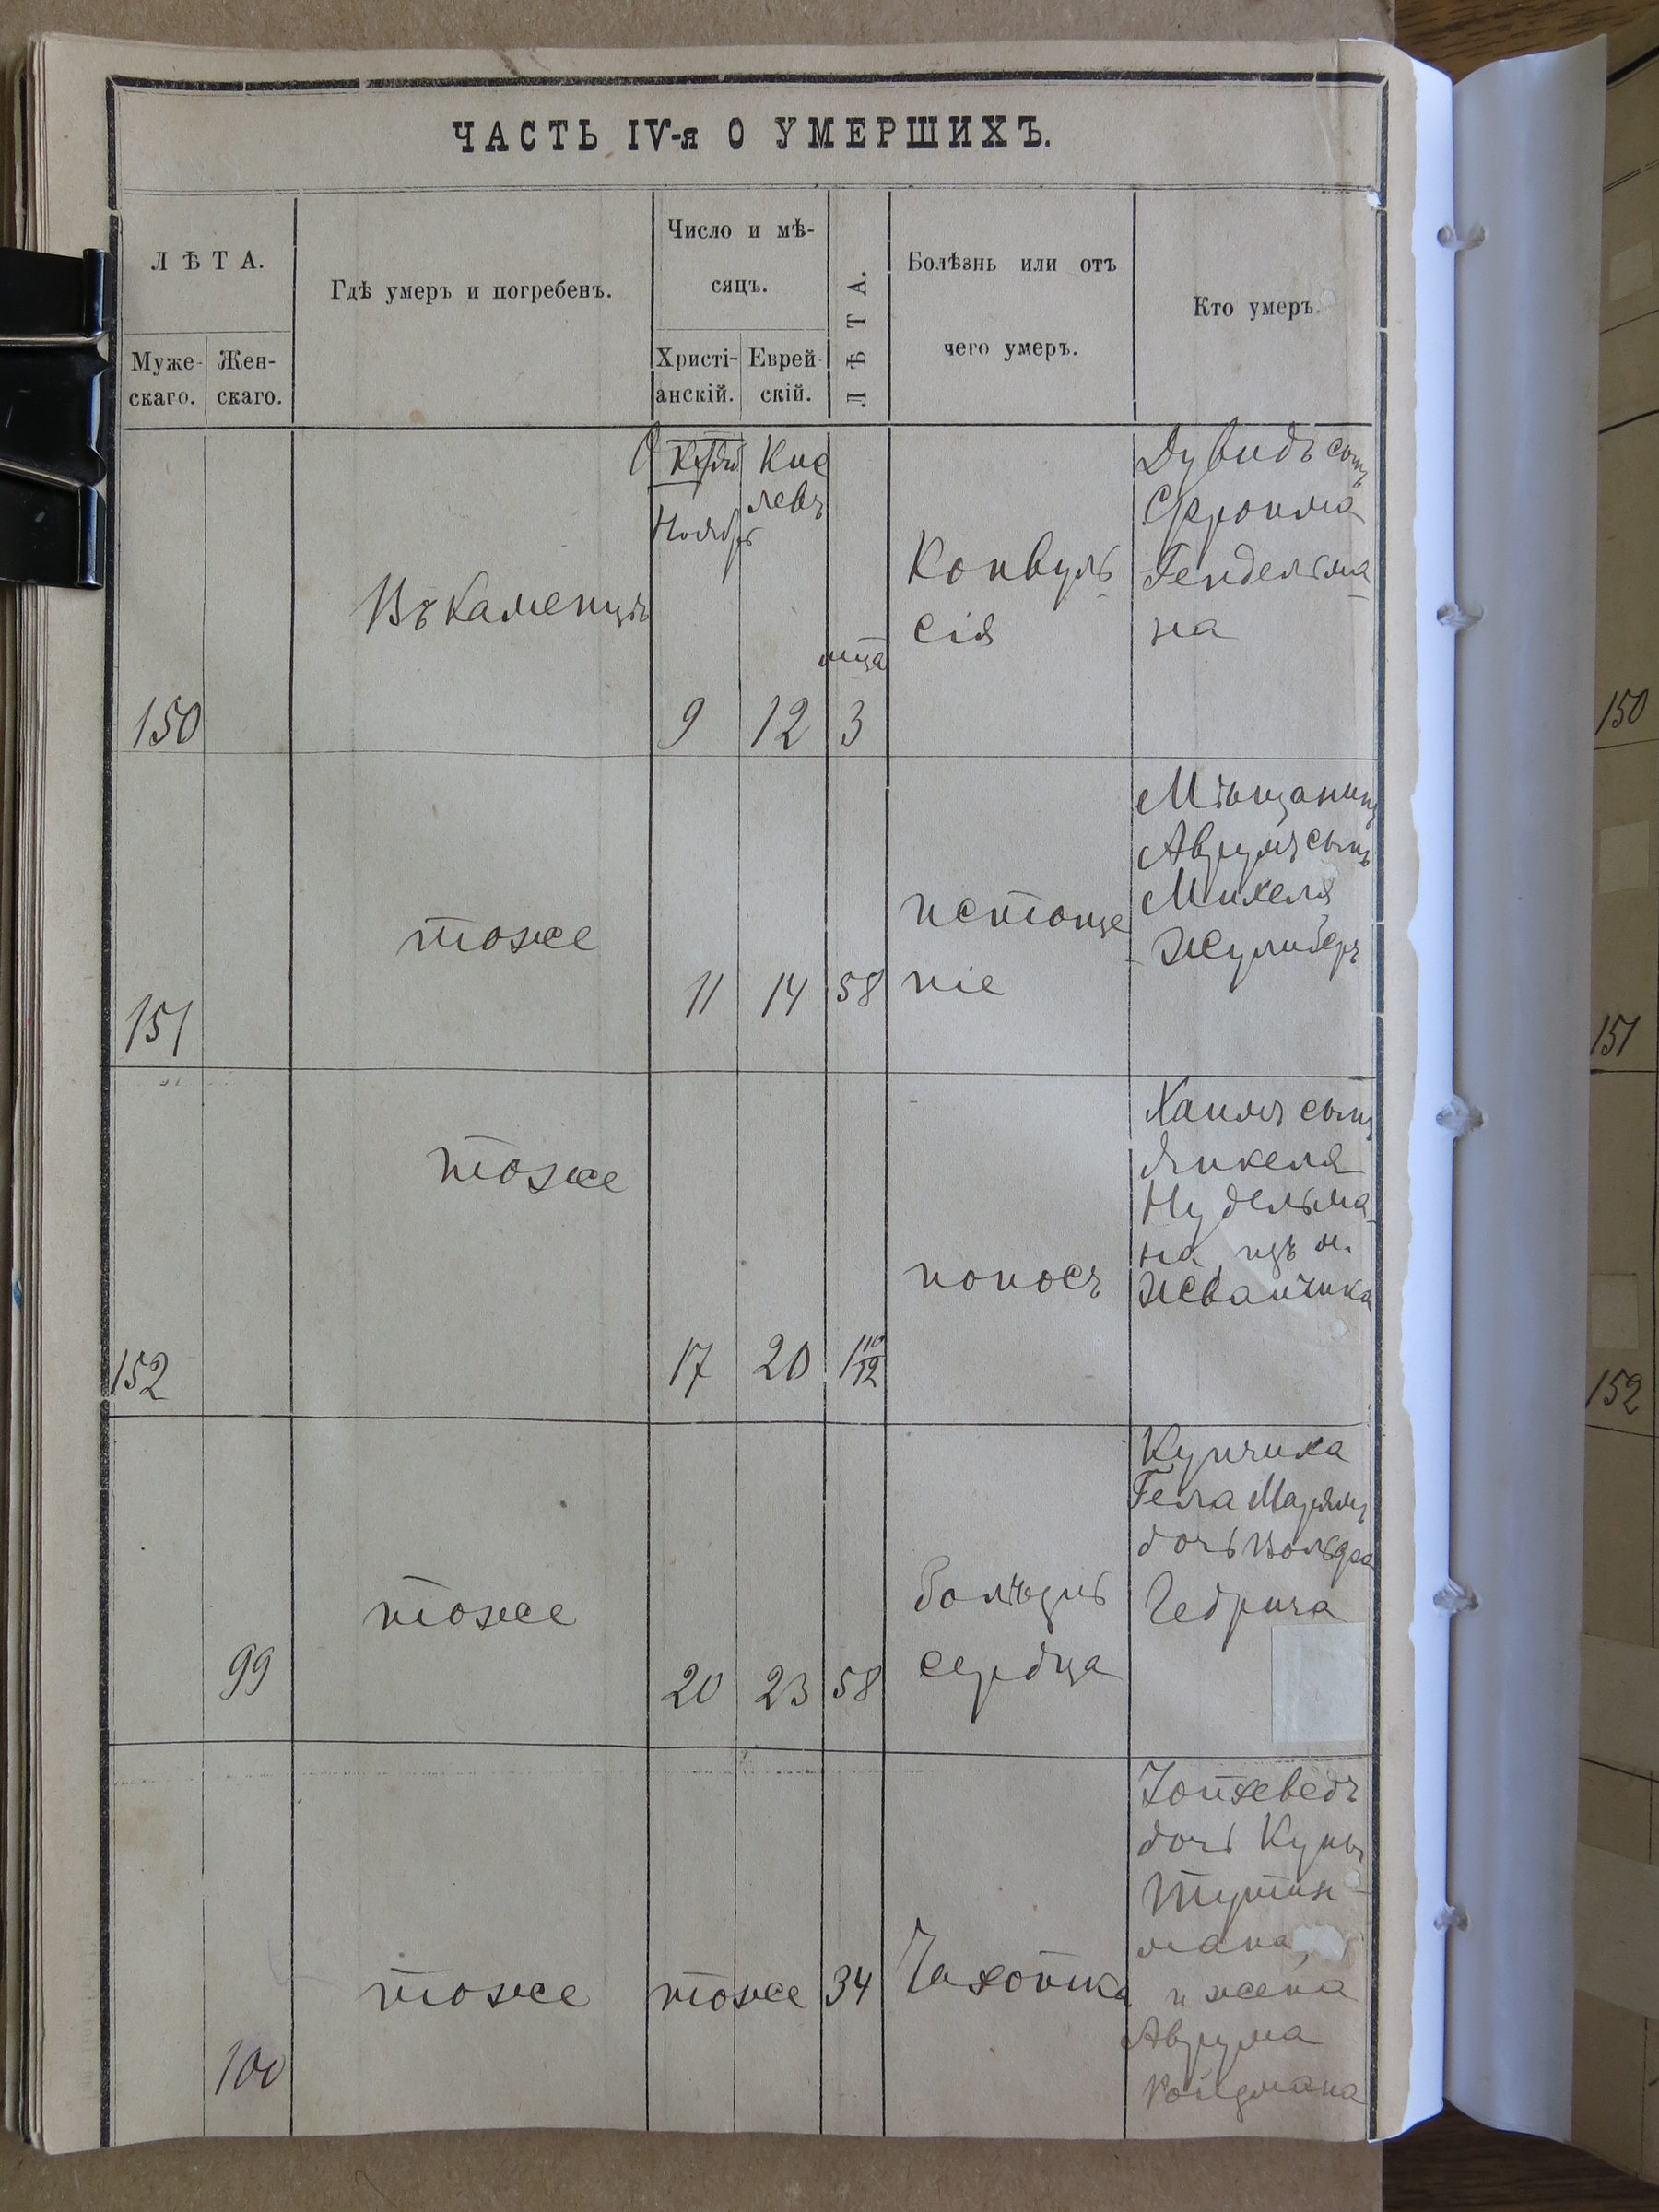 ЧАСТЬ IV-я О УМЕРШИХЪ.
ЛѢТА.
Муже-
скаго.
Жен-
скаго.
Гдѣ умеръ и погребенъ.
Число и мѣ-
сяцъ.
Христі-
анскій.
Еврей
скій.
ЛѢТА.
Болѣзнь или отъ
чего умеръ.
Кто умеръ.
150
Въ Каменцѣ
Ноябрь
9
Кис
левъ
12
мца
3
Конвуль
сія
Дувидъ сынъ
Сфроима
Гендельма
на
151
тоже
11
14
58
истоще
ніе
Мѣщанинъ
Аврумъ сынъ
Михеля
152
тоже
17
20
1 10/12
поносъ
Хаимъ сынъ
Янкеля
Нудельма
на, изъ м.
Жванчика
99
тоже
20
23
58
болѣзнь
сердца
Купчиха
Гела Марьямъ
дочь Вольфа
100
тоже
тоже
34
Чахотка
дочь
мана,
и жена
Аврума
Ройзмана
150
151
152